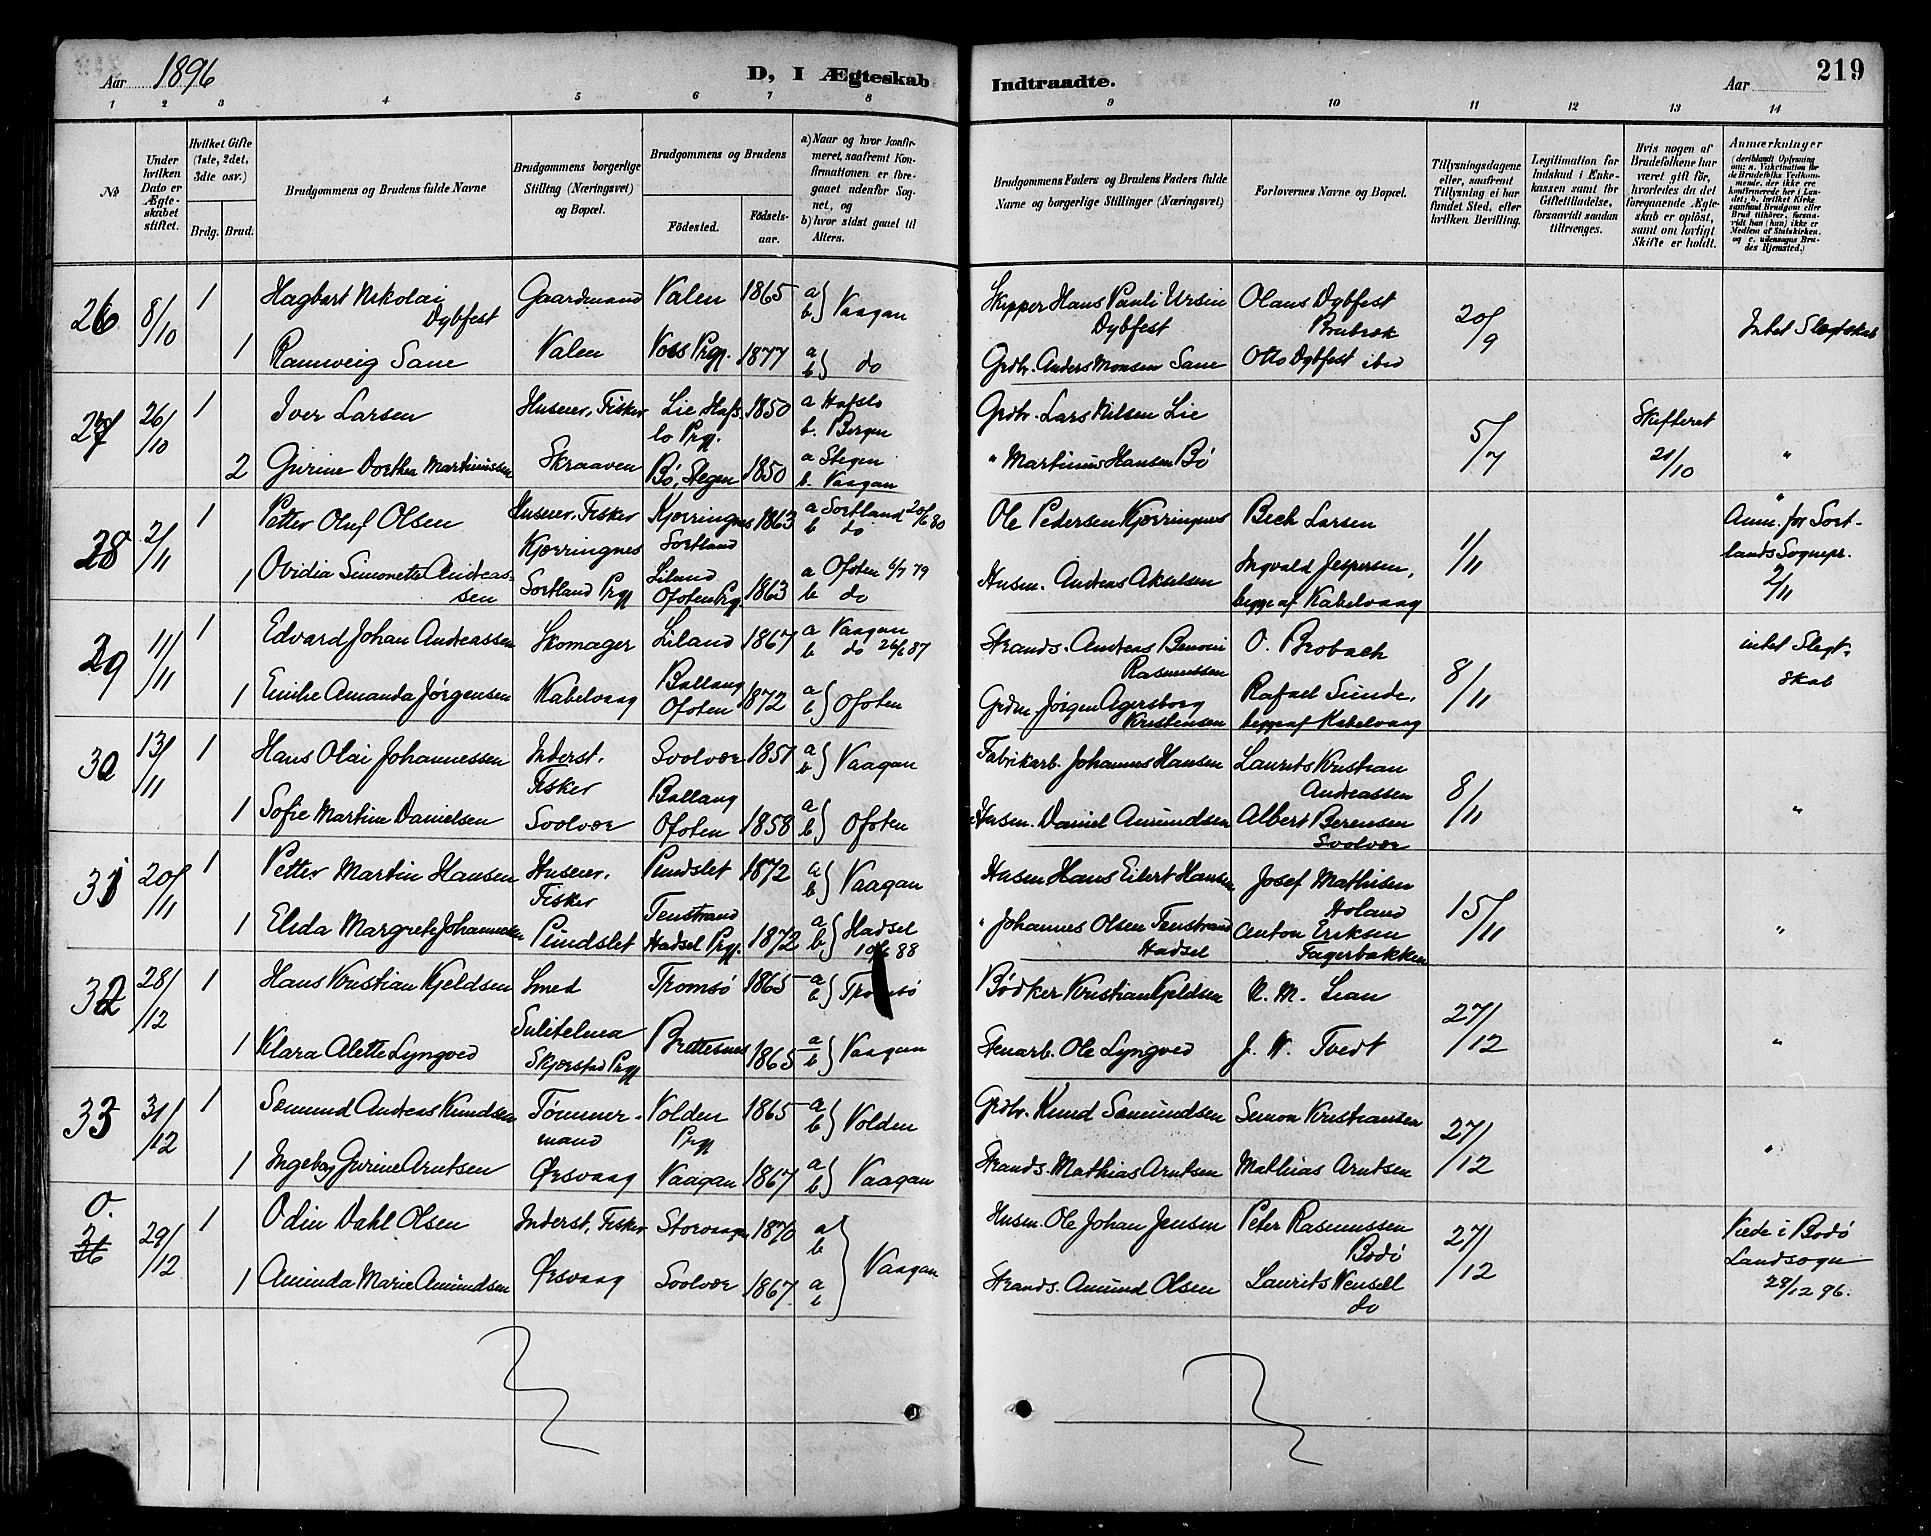 Aar 1896
D, I Ægteskab
Indtraadte.
Aar
219
1 2 3 4 5 6 7 8 9 10 11 12 13 14
No
Under hvilken Dato er Ægteskabet stiftet.
Hvilket Gifte (1ste, 2det, 3die osv.)
Brdg. Brud.
Brudgommens og Brudens fulde Navne
Brudgommens borgerlige Stilling (Næringsvei) og Bopæl.
Brudgommens og Brudens
Fødested.
Fødsels-aar.
a) Naar og hvor konfirmeret, saafremt Konfirmationen er foregaaet udenfor Sognet, og
b) hvor sidst gaaet til Alters.
Brudgommens Faders og Brudens Faders fulde Navne og borgerlige Stillinger (Næringsvei)
Forlovernes Navne og Bopæl.
Tillysningsdagene eller, saafremt Tillysning ei har fundet Sted, efter hvilken Bevilling.
Legitimation for Indskud i Enkekassen samt for Giftetilladelse, forsaavidt saadan tiltrænges.
Hvis nogen af Brudefolkene har været gift før, hvorledes da det foregaaende Ægteskab er opløst, samt om lovligt Skifte er holdt.
Anmærkninger
(deriblandt Oplysning om: a. Vakcination for de Brudefolks Vedkommende, der ikke ere konfirmerede her i Landet; b. hvilket Kirkesamfund Brudgom eller Brud tilhører, forsaavidt han (hun) ikke er Medlem af Statskirken, og c. udensogns Brudes Hjemsted.)
26 8/10 1 Hagbart Nikolai Dybfest Gaardmand Valen 1865 a b} Vaagan Skipper Hans Pauli Ursin Dybfest Olaus Dybfest Brubrok 20/9 Intet Slegtskab
1 Rannveig Sane Valen Voss Prgj. 1877 a b} do Grdbr. Anders Monsen Sane Otto Dybfest ibid
27 26/10 1 Iver Larsen Huseier, Fisker Lie Hafslo Prgj. 1850 a Hafslo b. Bergen Grdbr. Lars Nilsen Lie 5/7 Skifteret 21/10 "
2 Gurine Dorthea Martinussen Skraaven Bø, Stegen 1850 a Stegen b. Vaagan " Martinus Hansen Bø
28 2/11 1 Petter Oluf Olsen Huseier, Fisker Kjerringnes Sortland 1863 a Sortland 20/6 80 b do Ole Pedersen Kjerringnes Bech Larsen 1/11 " Anm. for Sortlands Sognepr. 2/11
1 Ovidia Simonette Andreassen Kjerringnes Sortland Prgj Liland Ofoten Prgj. 1863 a Ofoten 6/7 79 b do Husm. Andreas Akselsen Ingvald Jespersen, begge af Kabelvaag
29 11/11 1 Edvard Johan Andreassen Skomager Liland 1867 a Vaagan b do 26/6 87 Strands. Andreas Benoni Rasmussen O. Brobach 8/11 intet Slegtskab
1 Emilie Amanda Jørgensen Kabelvaag Ballang Ofoten 1872 a b} Ofoten Grdm. Jørgen Agersborg Kristensen Rafael Sunde, begge af Kabelvaag
30 13/11 1 Hans Olai Johannessen Inderst, Fisker Svolvær 1851 a b} Vaagan Fabrikarb. Johannes Hansen Laurits Kristian Andreassen 8/11 "
1 Sofie Martine Danielsen Svolvær Ballang Ofoten 1858 a b} Ofoten Husm. Daniel Amundsen Albert Berensen Svolvær
31 20/11 1 Petter Martin Hansen Huseier, Fisker Pundslet 1872 a b} Vaagan Husm Hans Eilert Hansen Josef Mathisen Holand 15/11 "
1 Elida Margrete Johannessen Pundslet Fenstrand Hadsel Prgj. 1872 a b} Hadsel 88 " Johannes Olsen Fenstrand Hadsel Anton Eriksen Fagerbakken
32 28/12 1 Hans Kristian Kjeldsen Smed Tromsø 1865 a b} Tromsø Bødker Kristian Kjeldsen N. M. Lian 27/12 "
1 Klara Alette Lyngved Sulitelma Skjerstad Prgj Brettesnes 1865 a b} Vaagan Stenarb. Ole Lyngved J. W. Tvedt
33 31/12 1 Semund Andreas Knudsen Tømmermand Volden Prgj 1865 a b} Volden Grdbr. Knud Semundsen Simon Kristiansen 27/12 "
1 Ingeborg Gurine Arntsen Ørsvaag Vaagan 1867 a b} Vaagan Strands. Mathias Arntsen Mathias Arntsen
0. 29/12 1 Odin Dahl Olsen Inderst, Fisker Storvaagen 1870 a b Husm. Ole Johan Jensen Peter Rasmussen Bodø 27/12 Viede i Bodø Landsogn 29/12 96.
1 Aminda Marie Amundsen Ørsvaag Svolvær 1867 a b} Vaagan Strands. Amund Olsen Laurits Wensell do